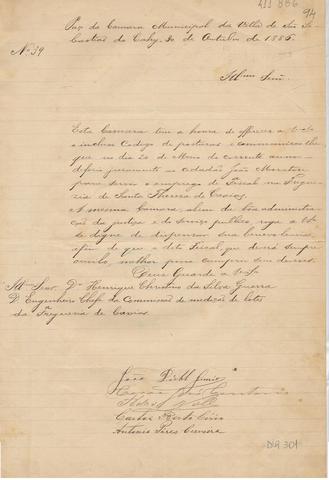 94
Paço da Camara Municipal da Villa de São Se-
bastião do Cahy, de Outubro de 1886.
Nº 39
Illmo Senr.
Esta Camara tem a honra de offerecer a V.Sª
o incluso Codigo de posturas e communicar lhe
que no dia 20 de do corrente anno
deferio juramento ao cidadão João
para servir o emprego de Fiscal na Fregue-
zia de Santa Thereza de Caxias.
A mesma Camara, alem da administra-
ção da justiça e do serviço publico, roga a V.Sª
se digne de dispensar sua benevolencia,
afim de que o dito Fiscal, que deverá sempre
ouvil-o, melhor possa cumprir seus deveres.
Deus Guarde a V.Sª
Illmo Senr. Dr Henrique Christino da Silva Guerra
D. Engenheiro Chefe da Commissão de medição de lotes
da Freguezia de Caxias
João Junior
Carlos
Antonio Pires Cerveira
DIG 301